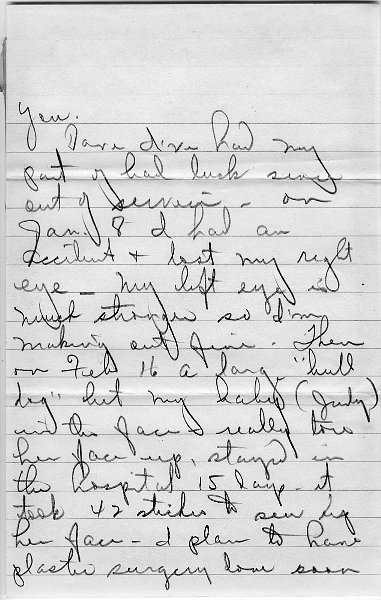 You.
Dave I've had my
part of bad luck since
out of service - on
Jan. 8 I had an
accident & lost my right
eye - My left eye is
much stronger so I'm
making out fine. Then
on Feb 16 a large "bull
dog" bit my baby (Judy)
in the face & really tore
her face up, stayed in
the hospital 15 days - it
took 42 stiches to sew up
her face - I plan to have
plastic surgery done soon